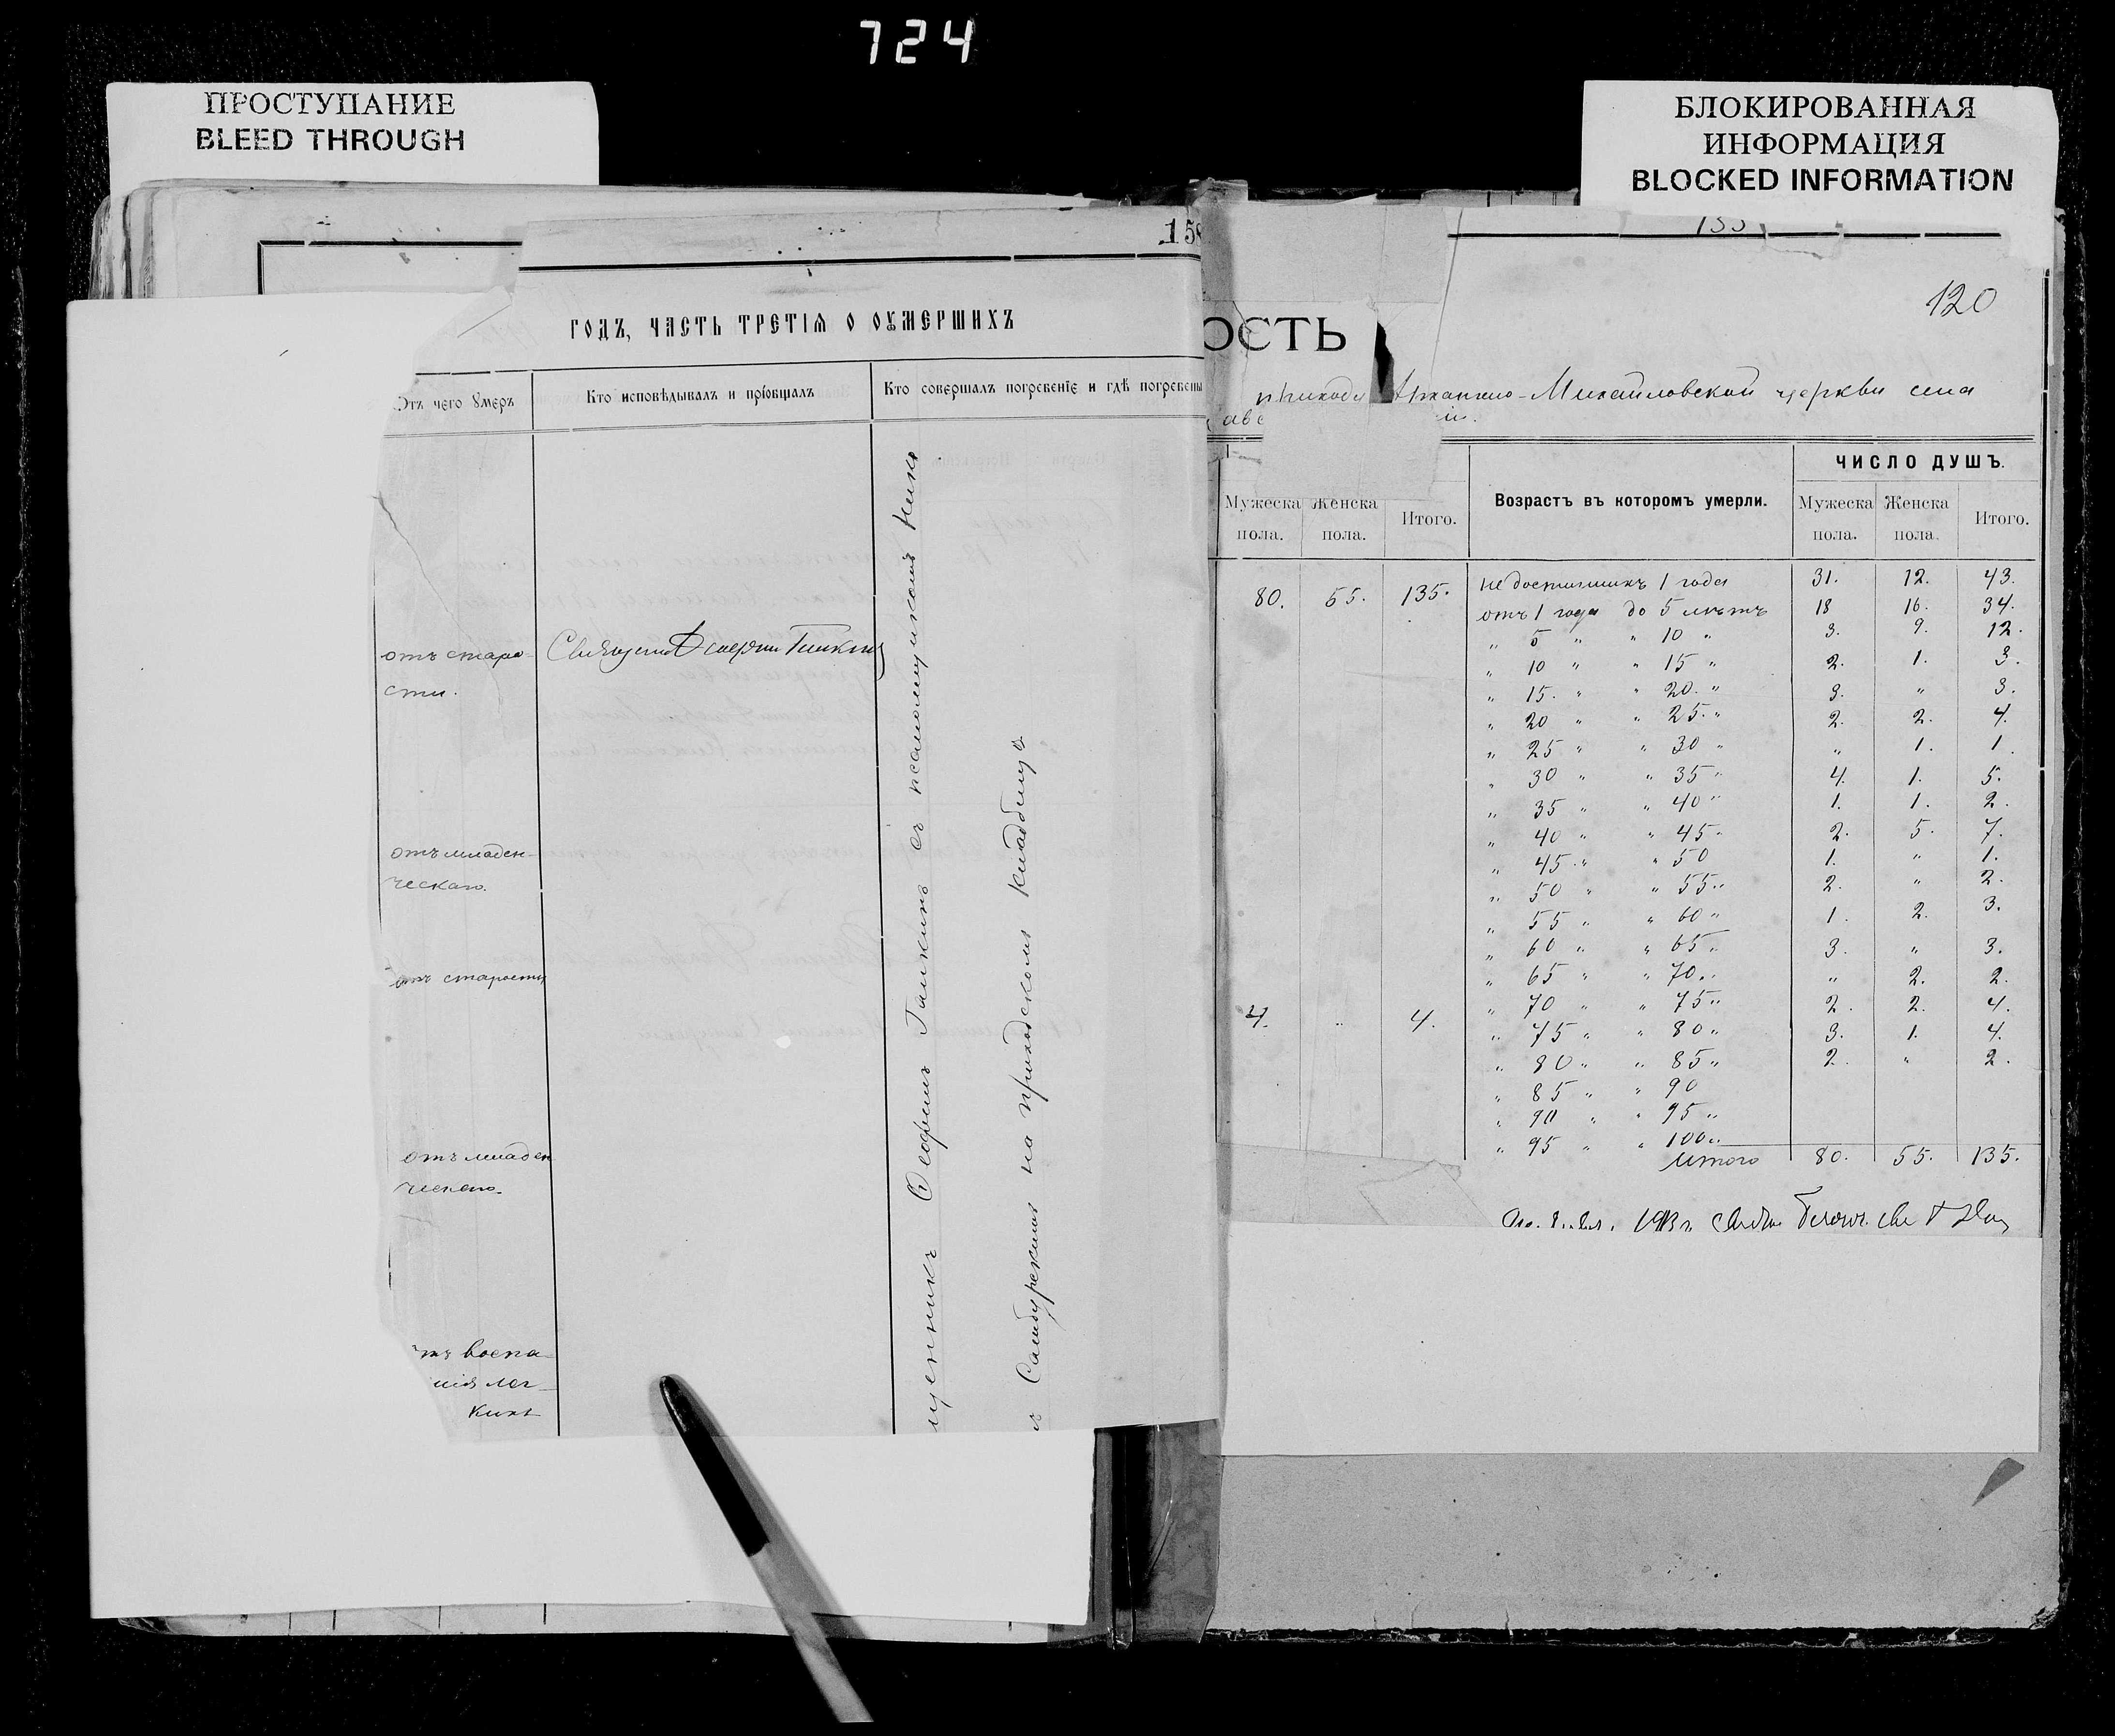 724
ПРОСТУПАНИЕ
BLEED THROUGH
БЛОКИРОВАННАЯ
ИНФОРМАЦИЯ
BLOCKED INFORMATION
158
ГОДЪ, ЧАСТЬ ТРЕТІѦ О ОУМЕРШИХЪ
Отъ чего умеръ
Кто исповѣдывалъ и прїобщалъ
Кто совершалъ погребенїе и гдѣ погребены
отъ старо-
сти.
отъ младен-
ческаго.
отъ старости
отъ младен
ческаго.
воспа-
лег-
кихъ
щенникъ Ѳеофилъ Галкинъ съ псаломщикомъ
на приходскомъ кладбищѣ
120
ОСТЬ
прихода Архангело-Михаиловской церкви села
ЧИСЛО ДУШЪ.
Мужеска пола. Женска пола. Итого. Возрастъ въ которомъ умерли. Мужеска пола. Женска пола. Итого.
80. 55. 135. недостигшихъ 1 года 31. 12. 43.
отъ 1 года до 5 лѣтъ 18 16. 34.
" 5 " " 10 " 3. 9. 12.
" 10 " " 15 " 2. 1. 3.
" 15. " " 20. " 3. " 3.
" 20 " " 25. " 2. 2. 4.
" 25 " " 30 " " 1. 1.
" 30 " " 35 " 4. 1. 5.
" 35 " " 40 " 1. 1. 2.
" 40 " " 45 " 2. 5. 7.
" 45 " " 50 1. " 1.
" 50 " " 55 " 2. " 2.
" 55 " " 60 " 1. 2. 3.
" 60 " " 65 " 3. " 3.
" 65 " " 70 " " 2. 2.
4. " 4. " 70 " " 75 " 2. 2. 4.
" 75 " " 80 " 3. 1. 4.
" 80 " " 85 " 2. " 2.
" 85 " " 90
" 90 " " 95 "
" 95 " " 100 "
Итого 80. 55. 135.